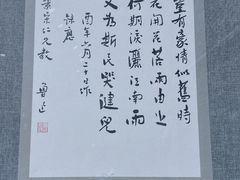 豈有豪情似舊時
花開花落兩由之
何期淚灑江南雨
又為斯民哭健兒
酉年六月二十日作
錄應
仁兄教
魯迅